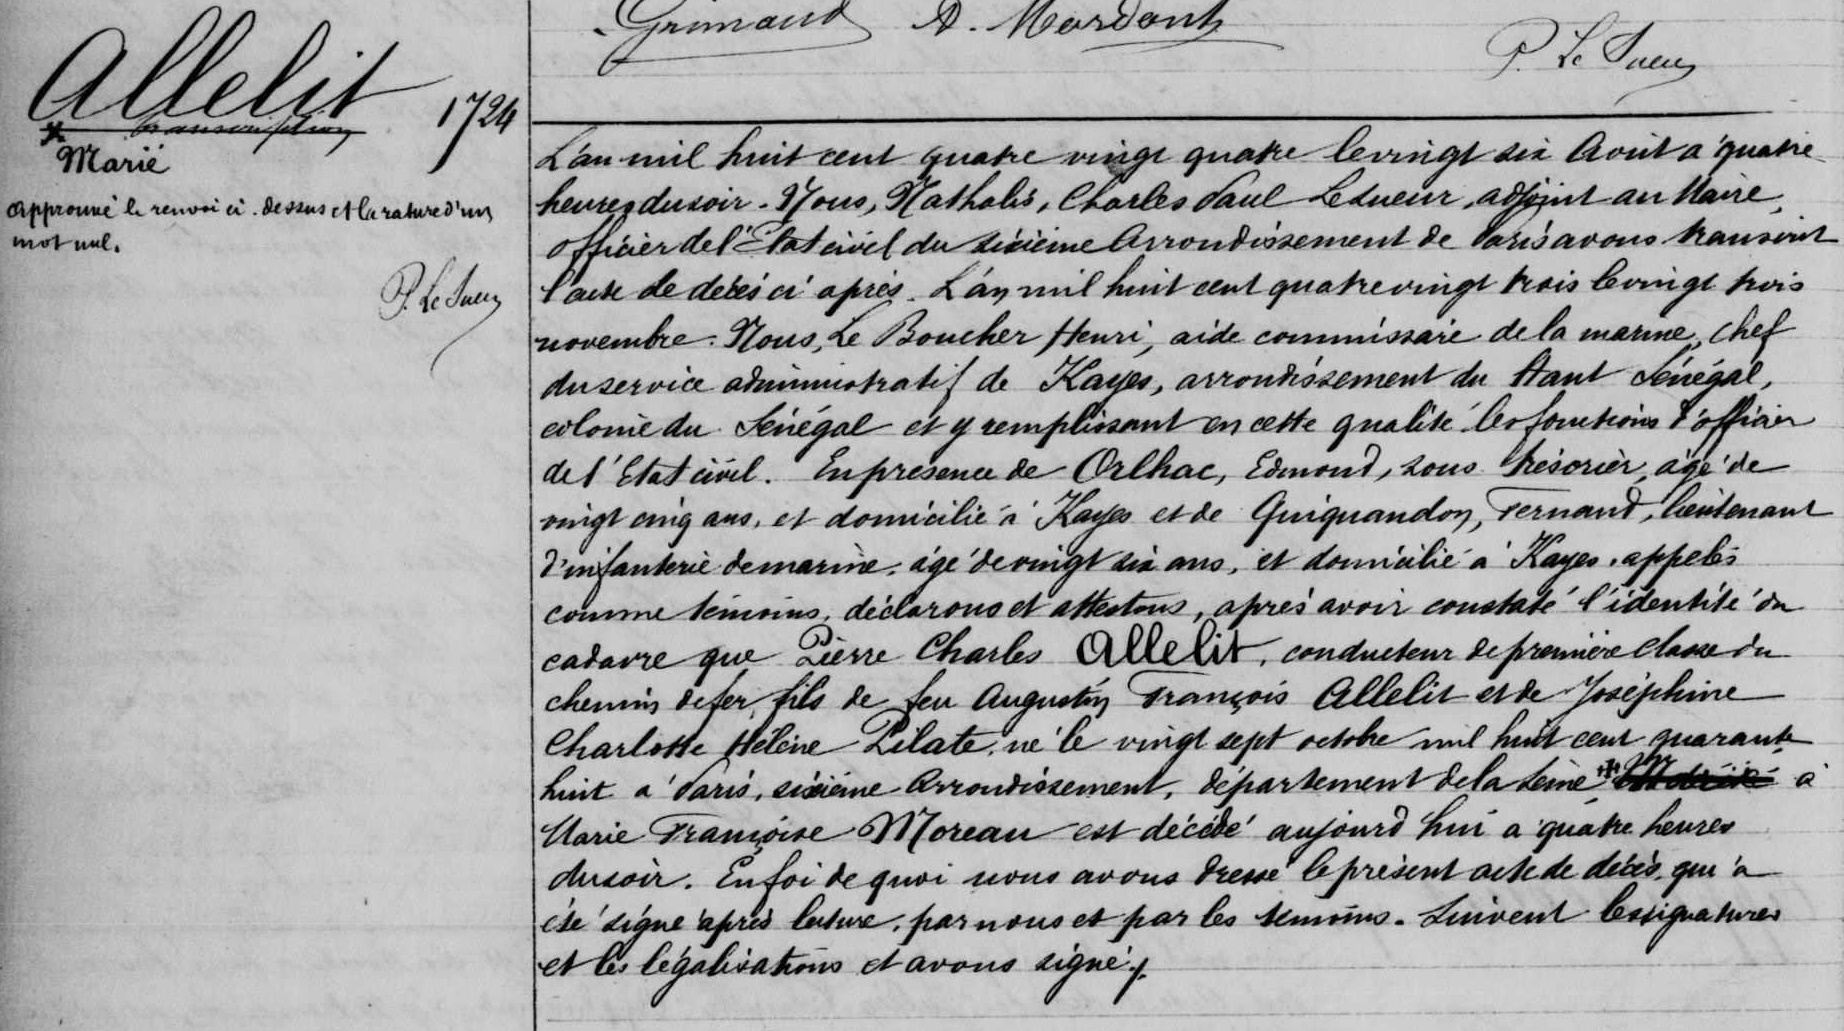 Grimaud A. Mardont
P. Le Sueur
Allelit
transcription
1724
+ Marié
approuvé le renvoi ci-dessus et la rature d'un
mot nul.
P. Le Sueur
L'an mil huit cent quatre vingt quatre le vingt six Août à quatre
heures du soir. Nous, Nathalis, Charles Paul Lesueur, adjoint au Maire,
officier de l'Etat civil du sixième Arrondissement de Paris avons transcrit
l'acte de décès ci après. L'an mil huit cent quatre vingt trois le vingt trois
novembre. Nous, Le Boucher Henri, aide commissaire de la marine, chef
du service administratif de Kayes, arrondissement du Haut Sénégal,
colonie du Sénégal et y remplissant en cette qualité les fonctions d'officier
de l'Etat civil. En présence de Orlhac, Edmond, sous trésorier, âgé de
vingt cinq ans, et domicilié à Kayes et de Quiquandon, Fernand, lieutenant
d'infanterie de marine, âgé de vingt six ans, et domicilié à Kayes, appelés
comme témoins, déclarons et attestons, après avoir constaté l'identité du
cadavre que Pierre Charles Allelit, conducteur de première classe du
chemin de fer, fils de feu Augustin François Allelit et de Joséphine
Charlotte Hélène Pilate, né le vingt sept octobre mil huit cent quarante
huit à Paris, sixième Arrondissement, département de la Seine + à
Marie Françoise Moreau est décédé aujourd'hui à quatre heures
du soir. En foi de quoi nous avons dressé le présent acte de décès, qui a
été signé après lecture, par nous et par les témoins. Suivent les signatures
et les légalisations et avons signé /.